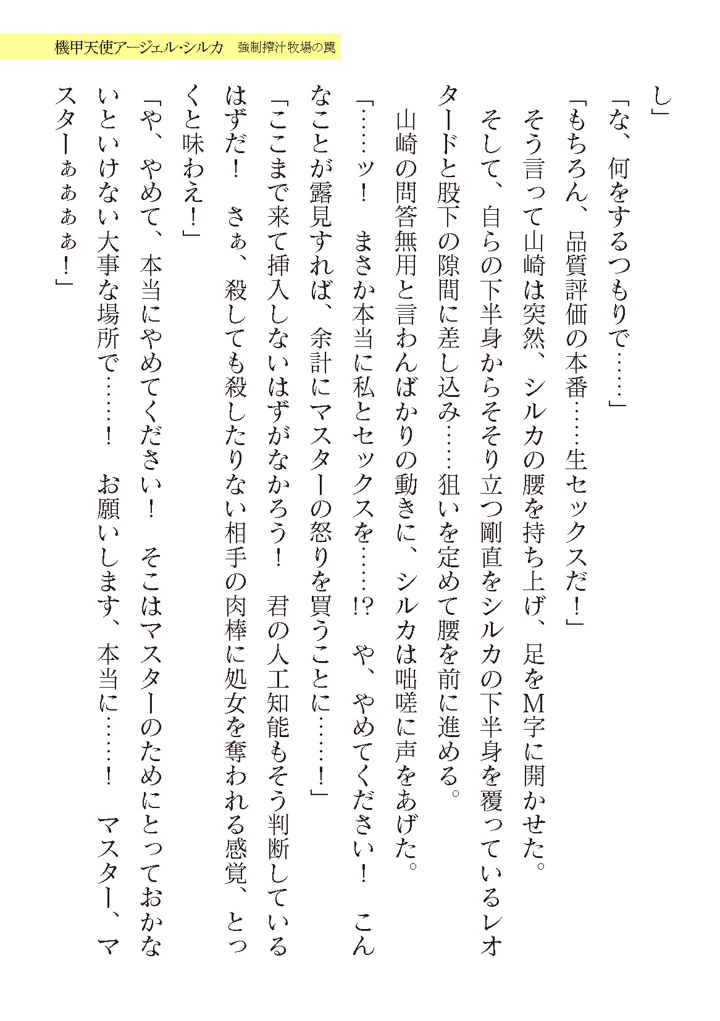 機甲天使アージェル・シルカ　強制搾汁牧場の罠
し」
「な、何をするつもりで……」
「もちろん、品質評価の本番……生セックスだ！」
　そう言って山崎は突然、シルカの腰を持ち上げ、足をＭ字に開かせた。
　そして、自らの下半身からそそり立つ剛直をシルカの下半身を覆っているレオ
タードと股下の隙間に差し込み……狙いを定めて腰を前に進める。
　山崎の問答無用と言わんばかりの動きに、シルカは咄嗟に声をあげた。
「……ッ！　まさか本当に私とセックスを……!?　や、やめてください！　こん
なことが露見すれば、余計にマスターの怒りを買うことに……！」
「ここまで来て挿入しないはずがなかろう！　君の人工知能もそう判断している
はずだ！　さぁ、殺しても殺したりない相手の肉棒に処女を奪われる感覚、とっ
くと味わえ！」
「や、やめて、本当にやめてください！　そこはマスターのためにとっておかな
いといけない大事な場所で……！　お願いします、本当に……！　マスター、マ
スターぁぁぁぁ！」